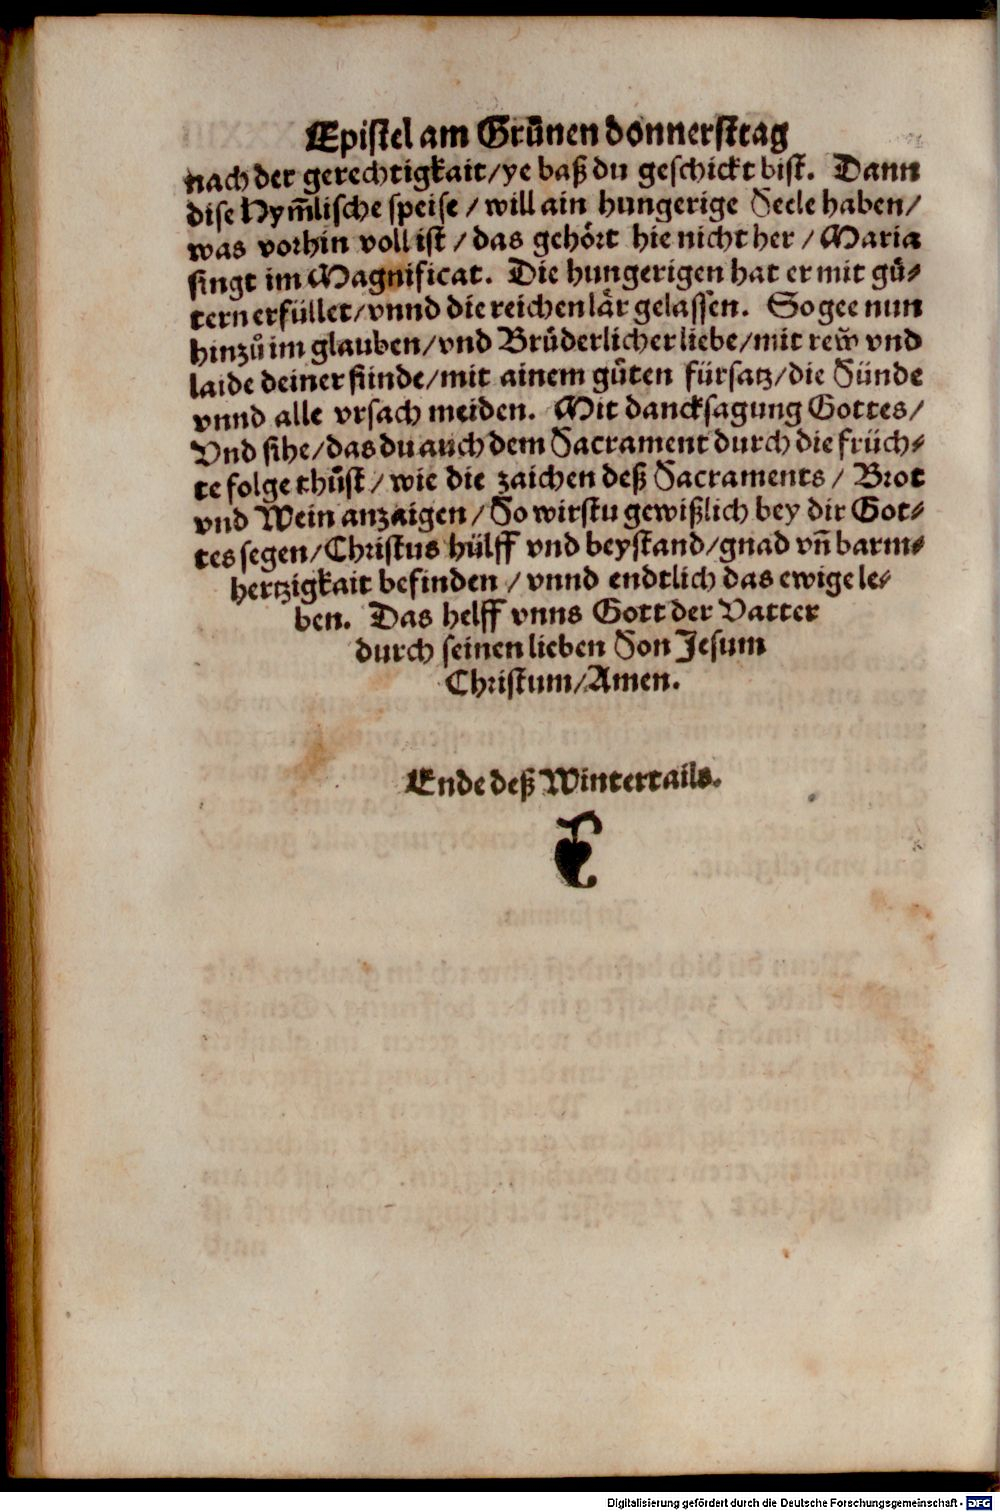 Epistel am Grůnen donnerstag
nach der gerechtigkait/ye baß du geschickt bist. Dann
dise Hym̃lische speise / will ain hungerige Seele haben/
was vorhin voll ist / das gehört hie nicht her / Maria
singt im Magnificat. Die hungerigen hat er mit gů-
tern erfüllet/vnnd die reichen lår gelassen. So gee nun
hinzů im glauben/vnd Brůderlicher liebe/mit rew̃ vnd
laide deiner sünde/mit ainem gůten fürsatz/die Sünde
vnnd alle vrsach meiden. Mit dancksagung Gottes/
Vnd sihe/das du auch dem Sacrament durch die früch-
te folge thůst / wie die zaichen deß Sacraments / Brot
vnd Wein anzaigen / So wirstu gewißlich bey dir Got-
tes segen/Christus hülff vnd beystand/gnad vñ barm-
hertzigkait befinden / vnnd endtlich das ewige le-
ben. Das helff vnns Gott der Vatter
durch seinen lieben Son Jesum
Christum/Amen.
Ende deß Wintertails.
Digitalisierung gefördert durch die Deutsche Forschungsgemeinschaft - DFG